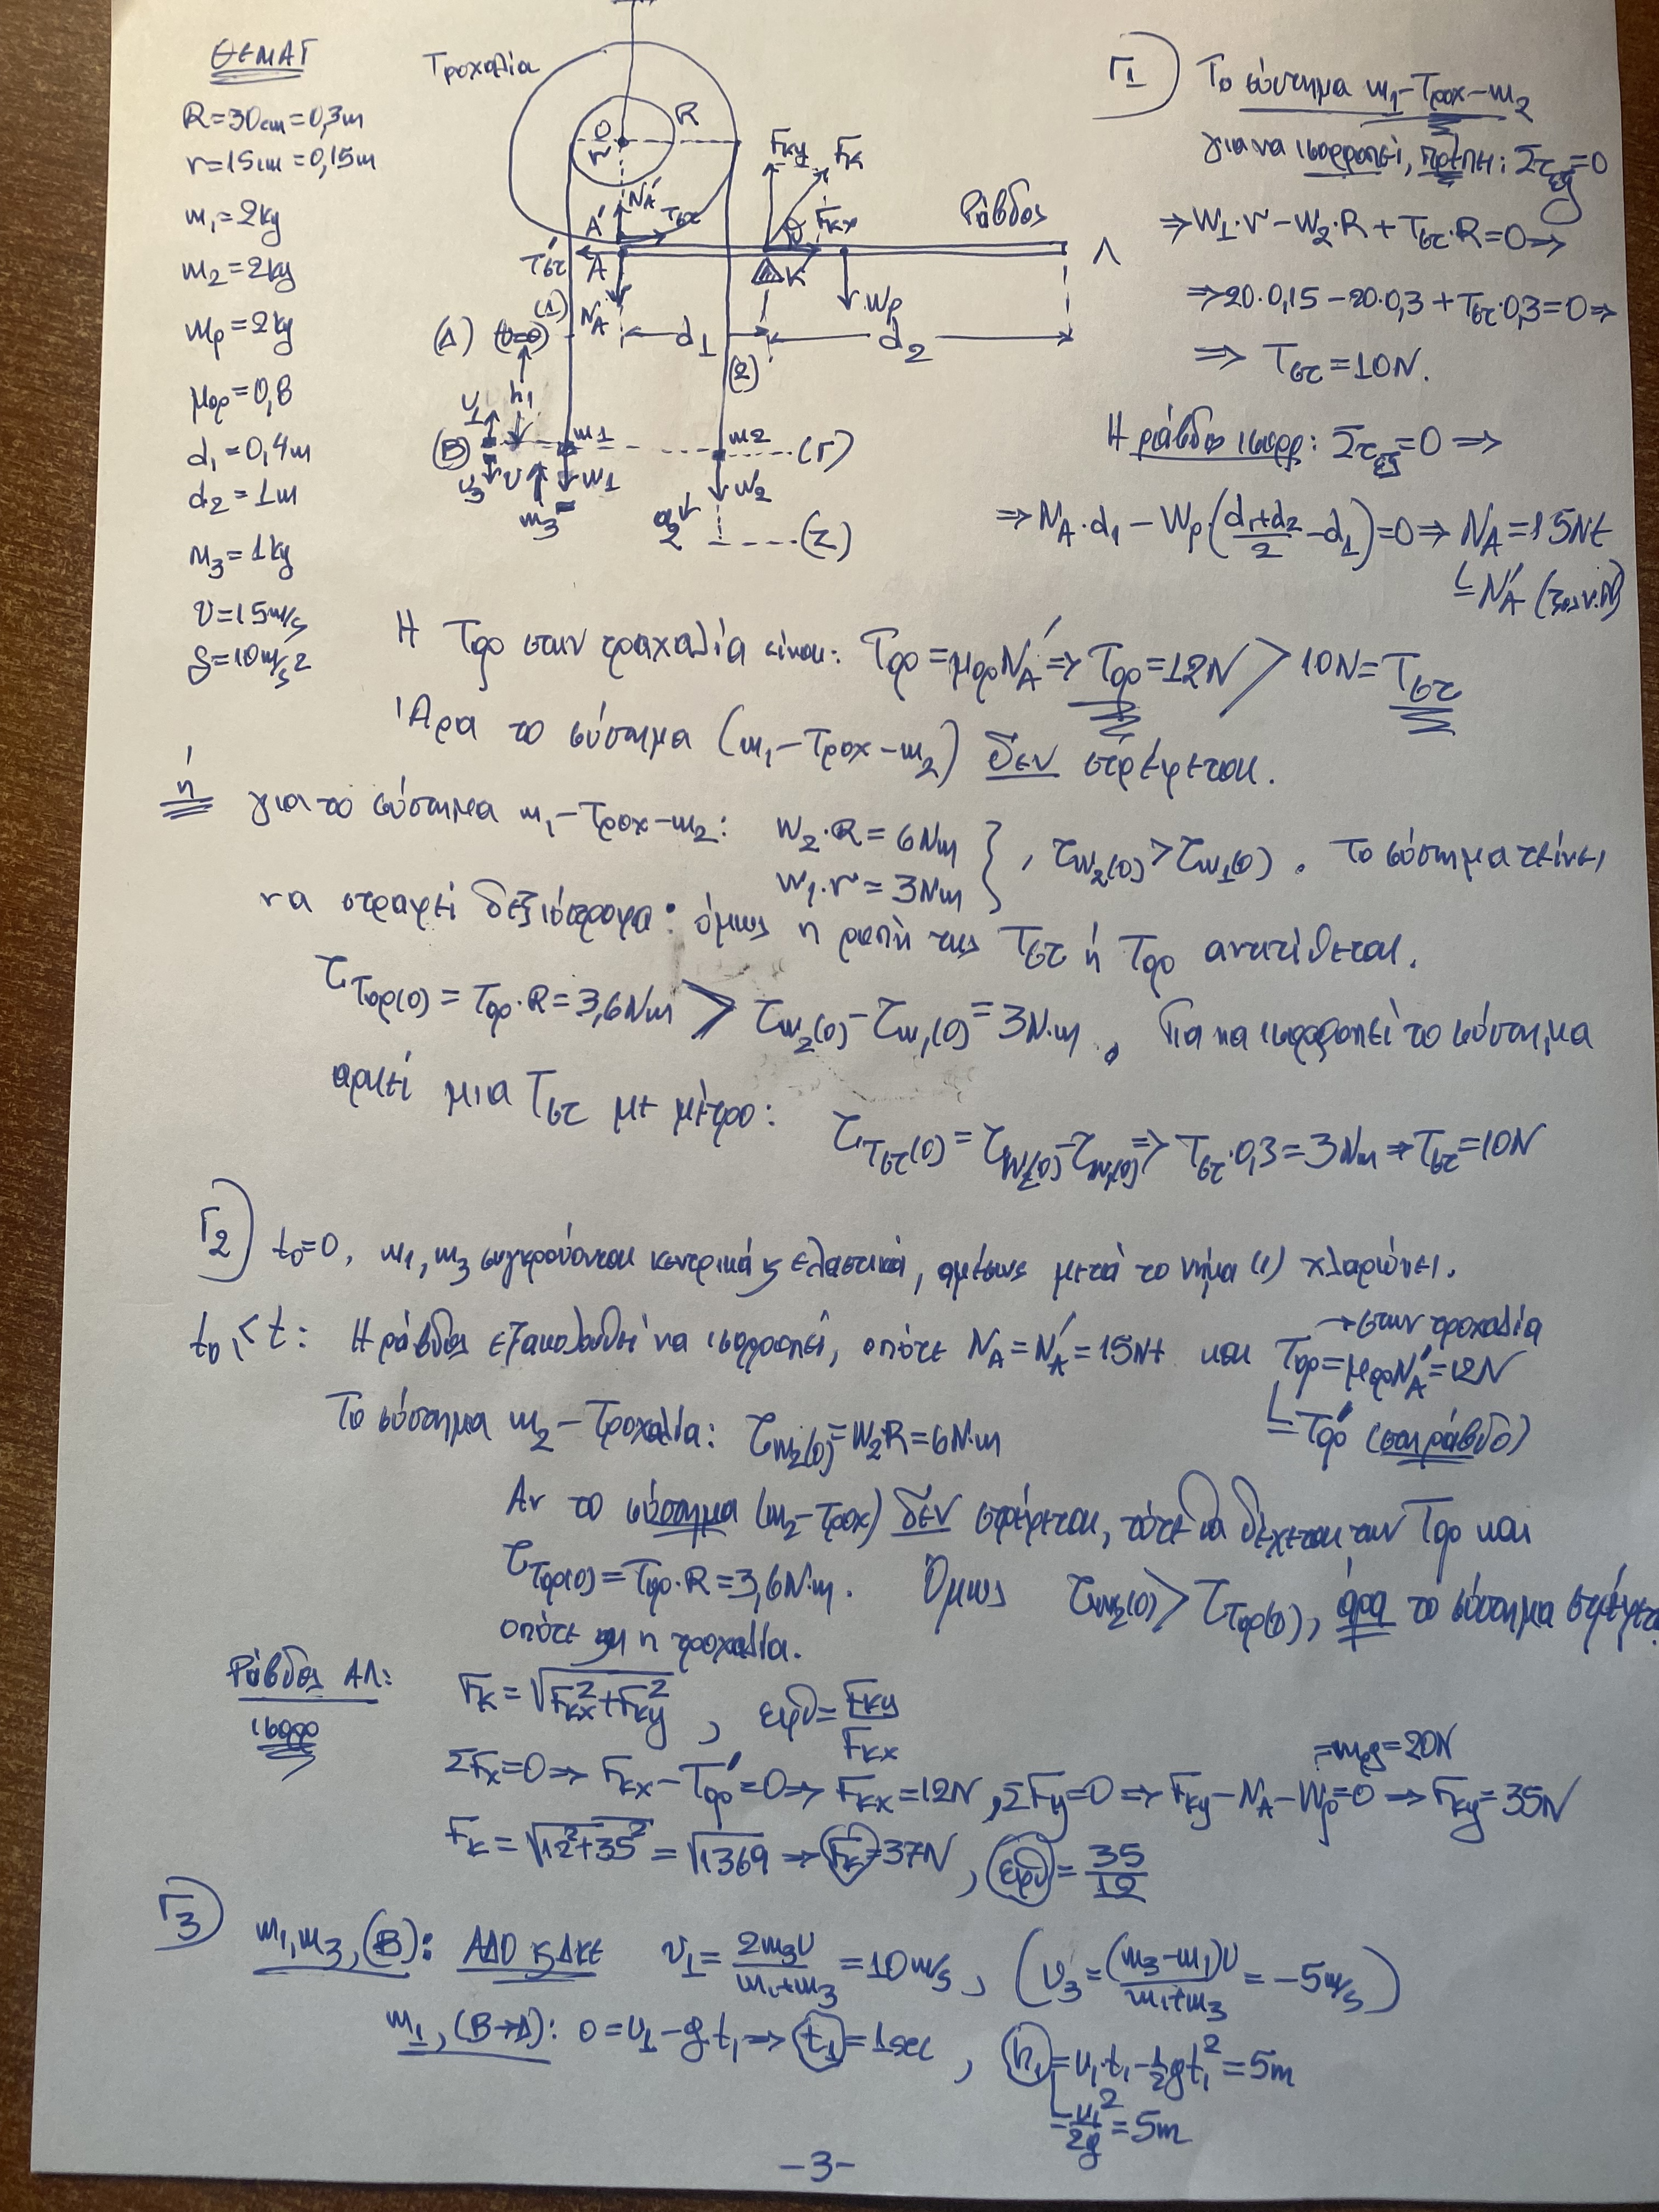 ΘΕΜΑ Γ
R=30cm=0,3m
r=15cm=0,15m
m₁=2kg
m₂=2kg
mρ=2kg
μορ=0,8
d₁=0,4m
d₂=1m
m₃=1kg
υ=15m/s
g=10m/s²
Τροχαλία
O
r
R
N'A
A'
Tστ
T'στ
A
NA
Fκy
Fκ
θ
Fκx
K
Wρ
Ράβδος
Λ
(1)
(Δ) (υ=0)
d₁
d₂
(2)
h₁
υ₁
(B)
m₁
m₂
(Γ)
υ₃
υ
W₁
W₂
m₃
α₂
(Z)
Γ1) Το σύστημα m₁-Τροχ-m₂
για να ισορροπεί, πρέπει: Στεξ=0
⇒W₁·r-W₂·R+Tστ·R=0⇒
⇒20·0,15-20·0,3+Tστ·0,3=0⇒
⇒ Tστ=10N.
Η ράβδος ισορρ: Στεξ=0 ⇒
⇒NA·d₁-Wρ(d₁+d₂/2-d₁)=0⇒ NA=15Nt
N'A
Η Tορ στην τροχαλία είναι: Tορ=μορN'A⇒Tορ=12N > 10N=Tστ
Άρα το σύστημα (m₁-Τροχ-m₂) δεν στρέφεται.
ή για το σύστημα m₁-Τροχ-m₂: W₂·R=6Nm
W₁·r=3Nm }, τW₂(0)>τW₁(0). Το σύστημα τείνει
να στραφεί δεξιόστροφα· όμως η ροπή της Tστ ή Tορ αντιτίθεται.
τTορ(0)=Tορ·R=3,6Nm > τW₂(0)-τW₁(0)=3N·m. Για να ισορροπεί το σύστημα
αρκεί μια Tστ με μέτρο: τTστ(0)=τW₂(0)-τW₁(0)⇒Tστ·0,3=3Nm⇒Tστ=10N
Γ2) t₀=0, m₁,m₃ συγκρούονται κεντρικά ς ελαστικά, αμέσως μετά το νήμα (1) χλαρώνει.
t₀<t: Η ράβδος εξακολουθεί να ισορροπεί, οπότε NA=N'A=15Nt και Tορ=μορN'A=12N
→στην τροχαλία
T'ορ (στη ράβδο)
Το σύστημα m₂-Τροχαλία: τW₂(0)=W₂R=6N·m
Αν το σύστημα (m₂-τροχ) δεν στρέφεται, τότε θα δέχεται την Tορ και
τTορ(0)=Tορ·R=3,6N·m. Όμως τW₂(0)>τTορ(0), άρα το σύστημα στρέφεται
οπότε η τροχαλία.
Ράβδος ΑΛ:
ισορρ
Fκ=√Fκx²+Fκy², εφθ=Fκy/Fκx
=mρg=20N
ΣFx=0⇒Fκx-T'ορ=0⇒Fκx=12N, ΣFy=0⇒Fκy-NA-Wρ=0⇒Fκy=35N
Fκ=√12²+35²=√1369⇒Fκ=37N, εφθ=35/12
Γ3) m₁,m₃,(B): ΑΔΟ ς ΔΚΕ υ₁=2m₃υ/m₁+m₃=10m/s, (υ₃=(m₃-m₁)υ/m₁+m₃=-5m/s)
m₁,(B→Δ): 0=υ₁-gt₁⇒t₁=1sec, h₁=υ₁·t₁-½gt₁²=5m
=υ₁²/2g=5m
-3-